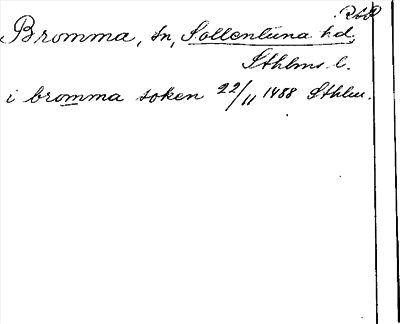 Bromma, sn, Sollentuna hd,
Sthlms l.
i bromma soken 22/11 1488 Sthlm.